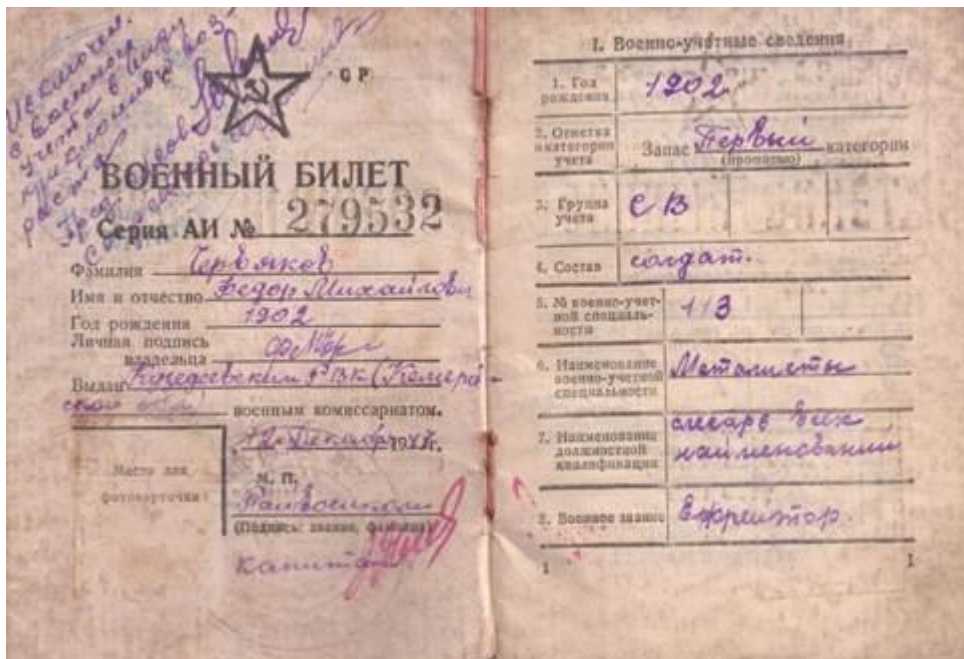 Исключен
с воинского
учета в виду
преклонного воз-
раста
СССР
ВОЕННЫЙ БИЛЕТ
Серия АИ № 279532
Фамилия Червяков
Имя и отчество Федор Михайлович
Год рождения 1902
Личная подпись
владельца
Выдан РВК (Кемеров-
ской обл)
военным комиссариатом.
12 Декабр 194 г.
Место для
фотокарточки
М. П.
Райвоенком
(Подпись: звание, фамилия)
капитан
I. Военно-учётные сведения
1. Год
рождения 1902
2. Отметка
о категории
учета Запас Первый категории
(прописью)
3. Группа
учета СВ
4. Состав солдат.
5. № военно-учет-
ной специаль-
ности 113
6. Наименование
военно-учетной
специальности Металисты
7. Наименование
должностной
квалификации слесарь всех
наименований
8. Военное звание Ефрейтор.
1
1